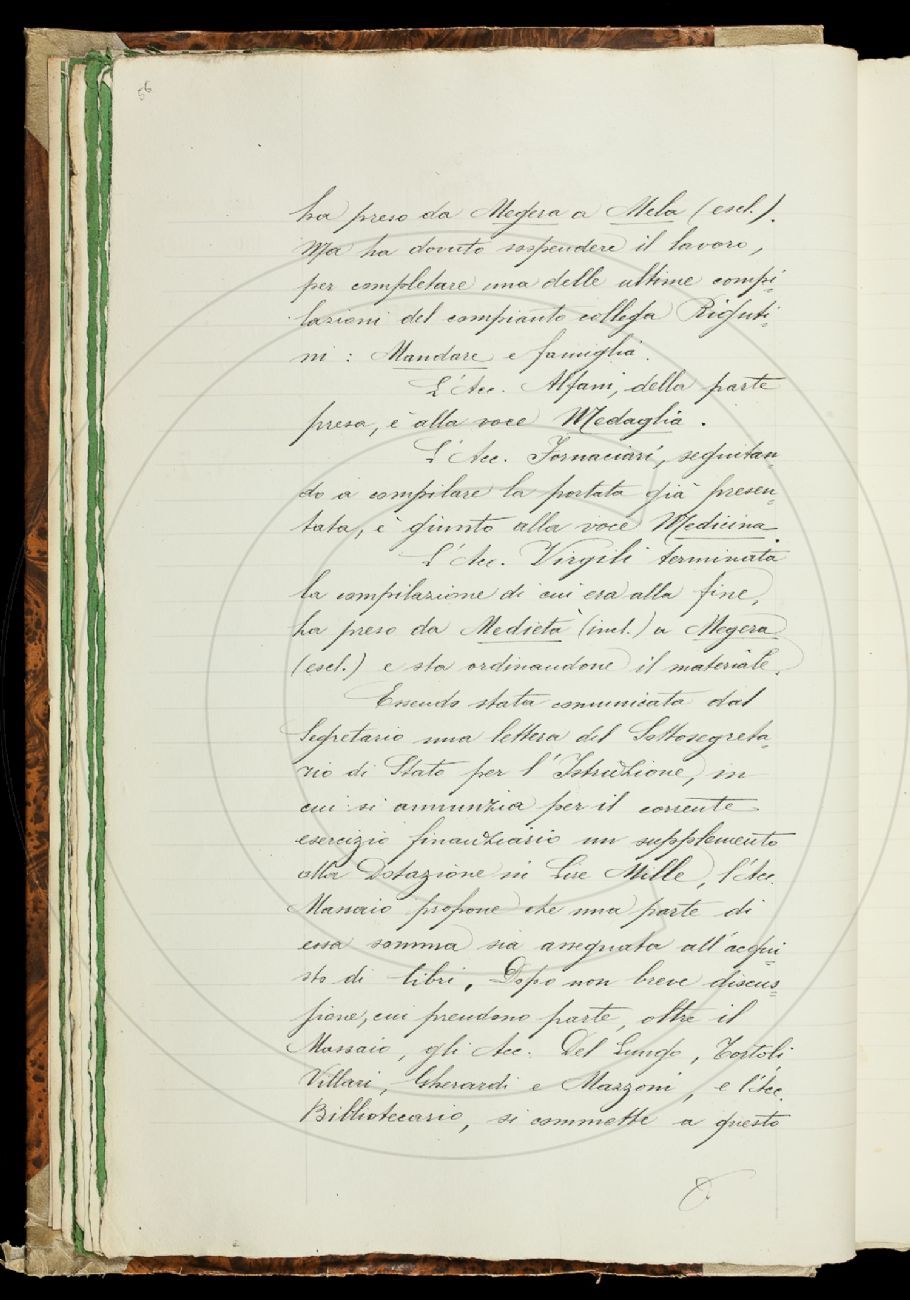 56
ha preso da Megera a Mela (escl.).
Ma ha dovuto sospendere il lavoro,
per completare una delle ultime compi=
lazioni del compianto collega Riguti=
ni: Mandare e famiglia.
L'Acc. Alfani, della parte
presa, è alla voce Medaglia.
L'Acc. Fornaciari, seguitan=
do a compilare la portata già presen=
tata, è giunto alla voce Medicina.
L'Acc. Virgili terminata
la compilazione di cui era alla fine,
ha preso da Medietà (incl.) a Megera
(escl.) e sta ordinandone il materiale.
Essendo stata comunicata dal
Segretario una lettera del Sottosegreta=
rio di Stato per l'Istruzione, in
cui si annunzia per il corrente
esercizio finanziario un supplemento
alla Dotazione in Lire Mille, l'Acc.
Massaio propone che una parte di
essa somma sia assegnata all'acqui=
sto di libri. Dopo non breve discus=
sione, cui prendono parte, oltre il
Massaio, gli Acc. Del Lungo, Tortoli
Villari, Gherardi e Mazzoni, e l'Acc.
Bibliotecario, si commette a questo